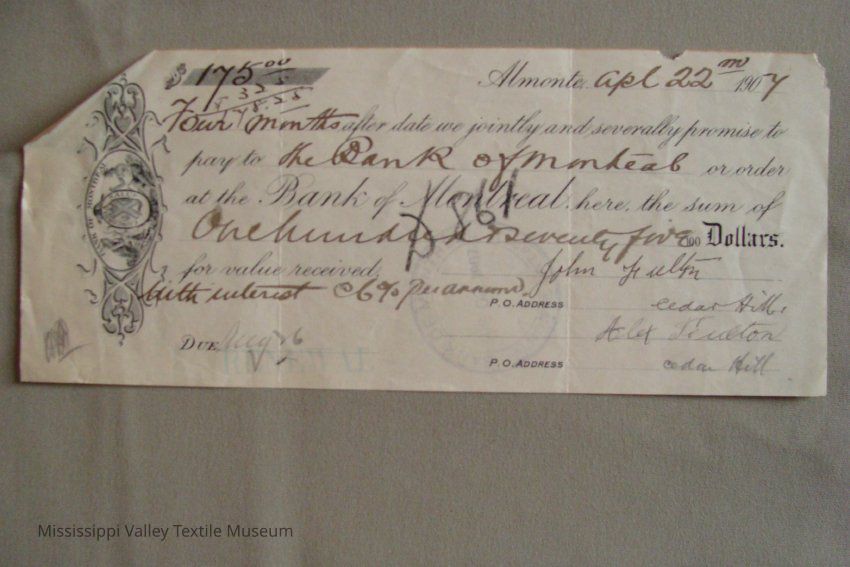 $175.00
Almonte, Apl 22nd 1907
3.25
178.25
Four months after date we jointly and severally promise to
pay to the Bank of Montreal or order
at the Bank of Montreal here, the sum of
One hundred & seventy five /100 Dollars.
for value received.
with interest @ 6% per annum.
John Fulton
P.O. ADDRESS Cedar Hill.
Alex Fulton
DUE Aug 26
P.O. ADDRESS Cedar Hill
BANK OF MONTREAL
Mississippi Valley Textile Museum